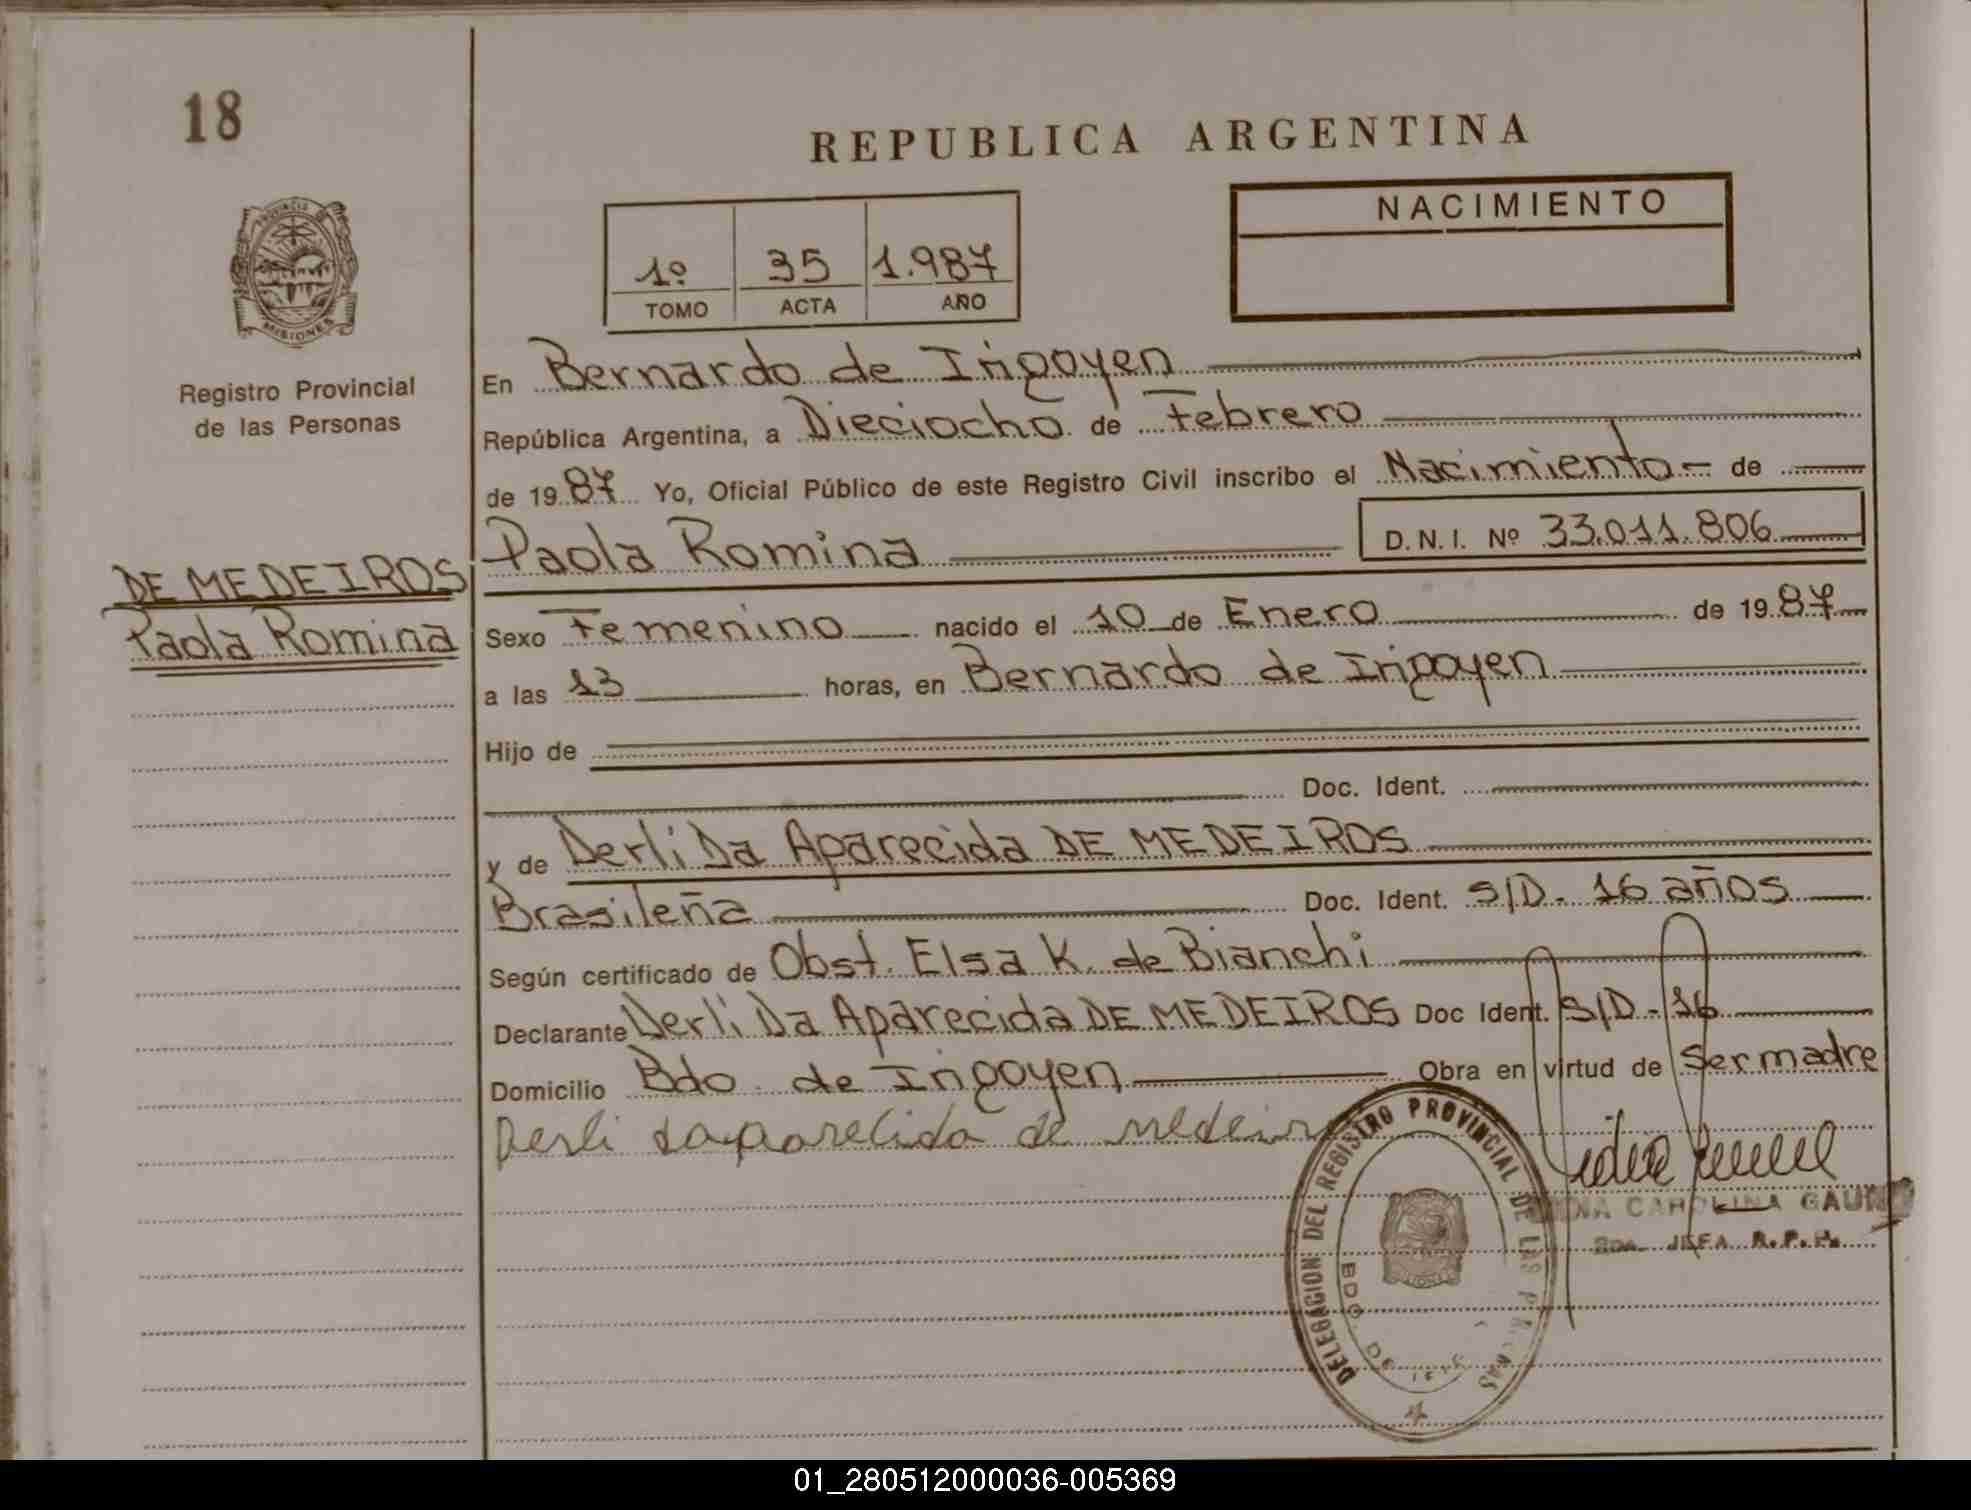 18
REPUBLICA ARGENTINA
PROVINCIA
MISIONES
Registro Provincial
de las Personas
NACIMIENTO
1º 35 1.987
TOMO ACTA AÑO
En Bernardo de Irigoyen
República Argentina, a Dieciocho de Febrero
de 1987 Yo, Oficial Público de este Registro Civil inscribo el Nacimiento - de
Paola Romina D.N.I. Nº 33.011.806
DE MEDEIROS
Paola Romina
Sexo Femenino nacido el 10 de Enero de 1987
a las 13 horas, en Bernardo de Irigoyen
Hijo de
Doc. Ident.
y de Derli Da Aparecida DE MEDEIROS
Brasileña Doc. Ident. S/D - 16 años
Según certificado de Obst. Elsa K. de Bianchi
Declarante Derli Da Aparecida DE MEDEIROS Doc Ident. S/D - 16
Domicilio Bdo. de Irigoyen Obra en virtud de Ser madre
Derli daaparecida de medeir
DELEGACION DEL REGISTRO PROVINCIAL DE LAS
BDO. DE
CAROLINA GAUN
JEFA R.P.P.
01_280512000036-005369